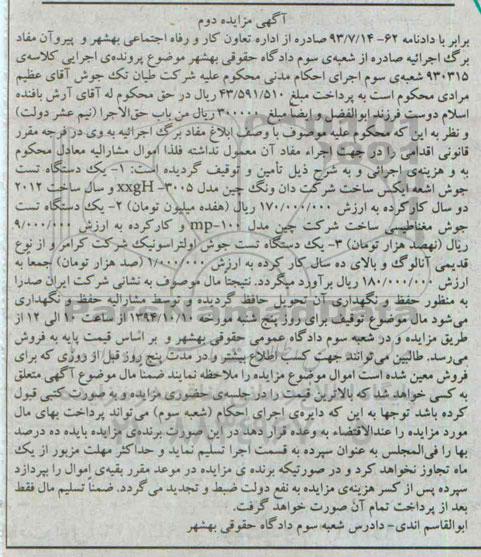 آگهی مزایده دوم
برابر با دادنامه ۶۲- ۹۳/۷/۱۴ صادره از اداره تعاون کار و رفاه اجتماعی بهشهر و پیروآن مفاد
برگ اجرائیه صادره از شعبه‌ی سوم دادگاه حقوقی بهشهر موضوع پرونده‌ی اجرایی کلاسه‌ی
۹۳۰۳۱۵ شعبه‌ی سوم اجرای احکام مدنی محکوم علیه شرکت طیان تک جوش آقای عظیم
مرادی محکوم است به پرداخت مبلغ ۴۳/۵۹۱/۵۱۰ ریال در حق محکوم له آقای آرش بافنده
اسلام دوست فرزند ابوالفضل و ایضا مبلغ ۳۰۰۰۰۰۰ ریال من باب حق‌الاجرا (نیم عشر دولت)
و نظر به این که محکوم علیه موصوف با وصف ابلاغ مفاد برگ اجرائیه به وی در فرجه مقرر
قانونی اقدامی را در جهت اجراء مفاد آن معمول نداشته فلذا اموال مشارالیه معادل محکوم
به و هزینه‌ی اجرائی و به شرح ذیل تأمین و توقیف گردیده است: ۱- یک دستگاه تست
جوش اشعه ایکس ساخت شرکت دان ونگ چین مدل xxgH -۳۰۰۵ و سال ساخت ۲۰۱۲
دو سال کارکرده به ارزش ۱۷۰/۰۰۰/۰۰۰ ریال (هفده میلیون تومان) ۲- یک دستگاه تست
جوش مغناطیسی ساخت شرکت چین مدل mp-۱۰۰ و کارکرده به ارزش ۹/۰۰۰/۰۰۰
ریال (نهصد هزار تومان) ۳- یک دستگاه تست جوش اولتراسونیک شرکت کرامر و از نوع
قدیمی آنالوگ و بالای ده سال کار کرده به ارزش ۱/۰۰۰/۰۰۰ (صد هزار تومان) جمعا به
ارزش ۱۸۰/۰۰۰/۰۰۰ ریال برآورد میگردد. نتیجتا مال موصوف به نشانی شرکت ایران صدرا
به منظور حفظ و نگهداری آن تحویل حافظ گردیده و توسط مشارالیه حفظ و نگهداری
می‌شود مال موضوع توقیف برای روز پنج شنبه مورخه ۱۳۹۴/۱۰/۱۰ از ساعت ۱۰ الی ۱۲ از
طریق مزایده و در شعبه سوم دادگاه عمومی حقوقی بهشهر و بر اساس قیمت پایه به فروش
می‌رسد. طالبین می‌توانند جهت کسب اطلاع بیشتر و در مدت پنج روز قبل از روزی که برای
فروش معین شده است اموال موضوع مزایده را ملاحظه نمایند ضمنا مال موضوع آگهی متعلق
به کسی خواهد شد که بالاترین قیمت را در جلسه‌ی حضوری مزایده و به صورت کتبی قبول
کرده باشد توجها به این که دایره‌ی اجرای احکام (شعبه سوم) می‌تواند پرداخت بهای مال
مورد مزایده را عندالاقتضاء به وعده قرار دهد در این صورت برنده‌ی مزایده بایده ده درصد
بها را فی‌المجلس به عنوان سپرده به قسمت اجرا تسلیم نماید و حداکثر مهلت مزبور از یک
ماه تجاوز نخواهد کرد و در صورتیکه برنده ی مزایده در موعد مقرر بقیه‌ی اموال را بپردازد
سپرده پس از کسر هزینه‌ی مزایده به نفع دولت ضبط و تجدید می‌گردد. ضمناً تسلیم مال فقط
بعد از پرداخت تمام آن صورت خواهد گرفت.
ابوالقاسم اندی- دادرس شعبه سوم دادگاه حقوقی بهشهر